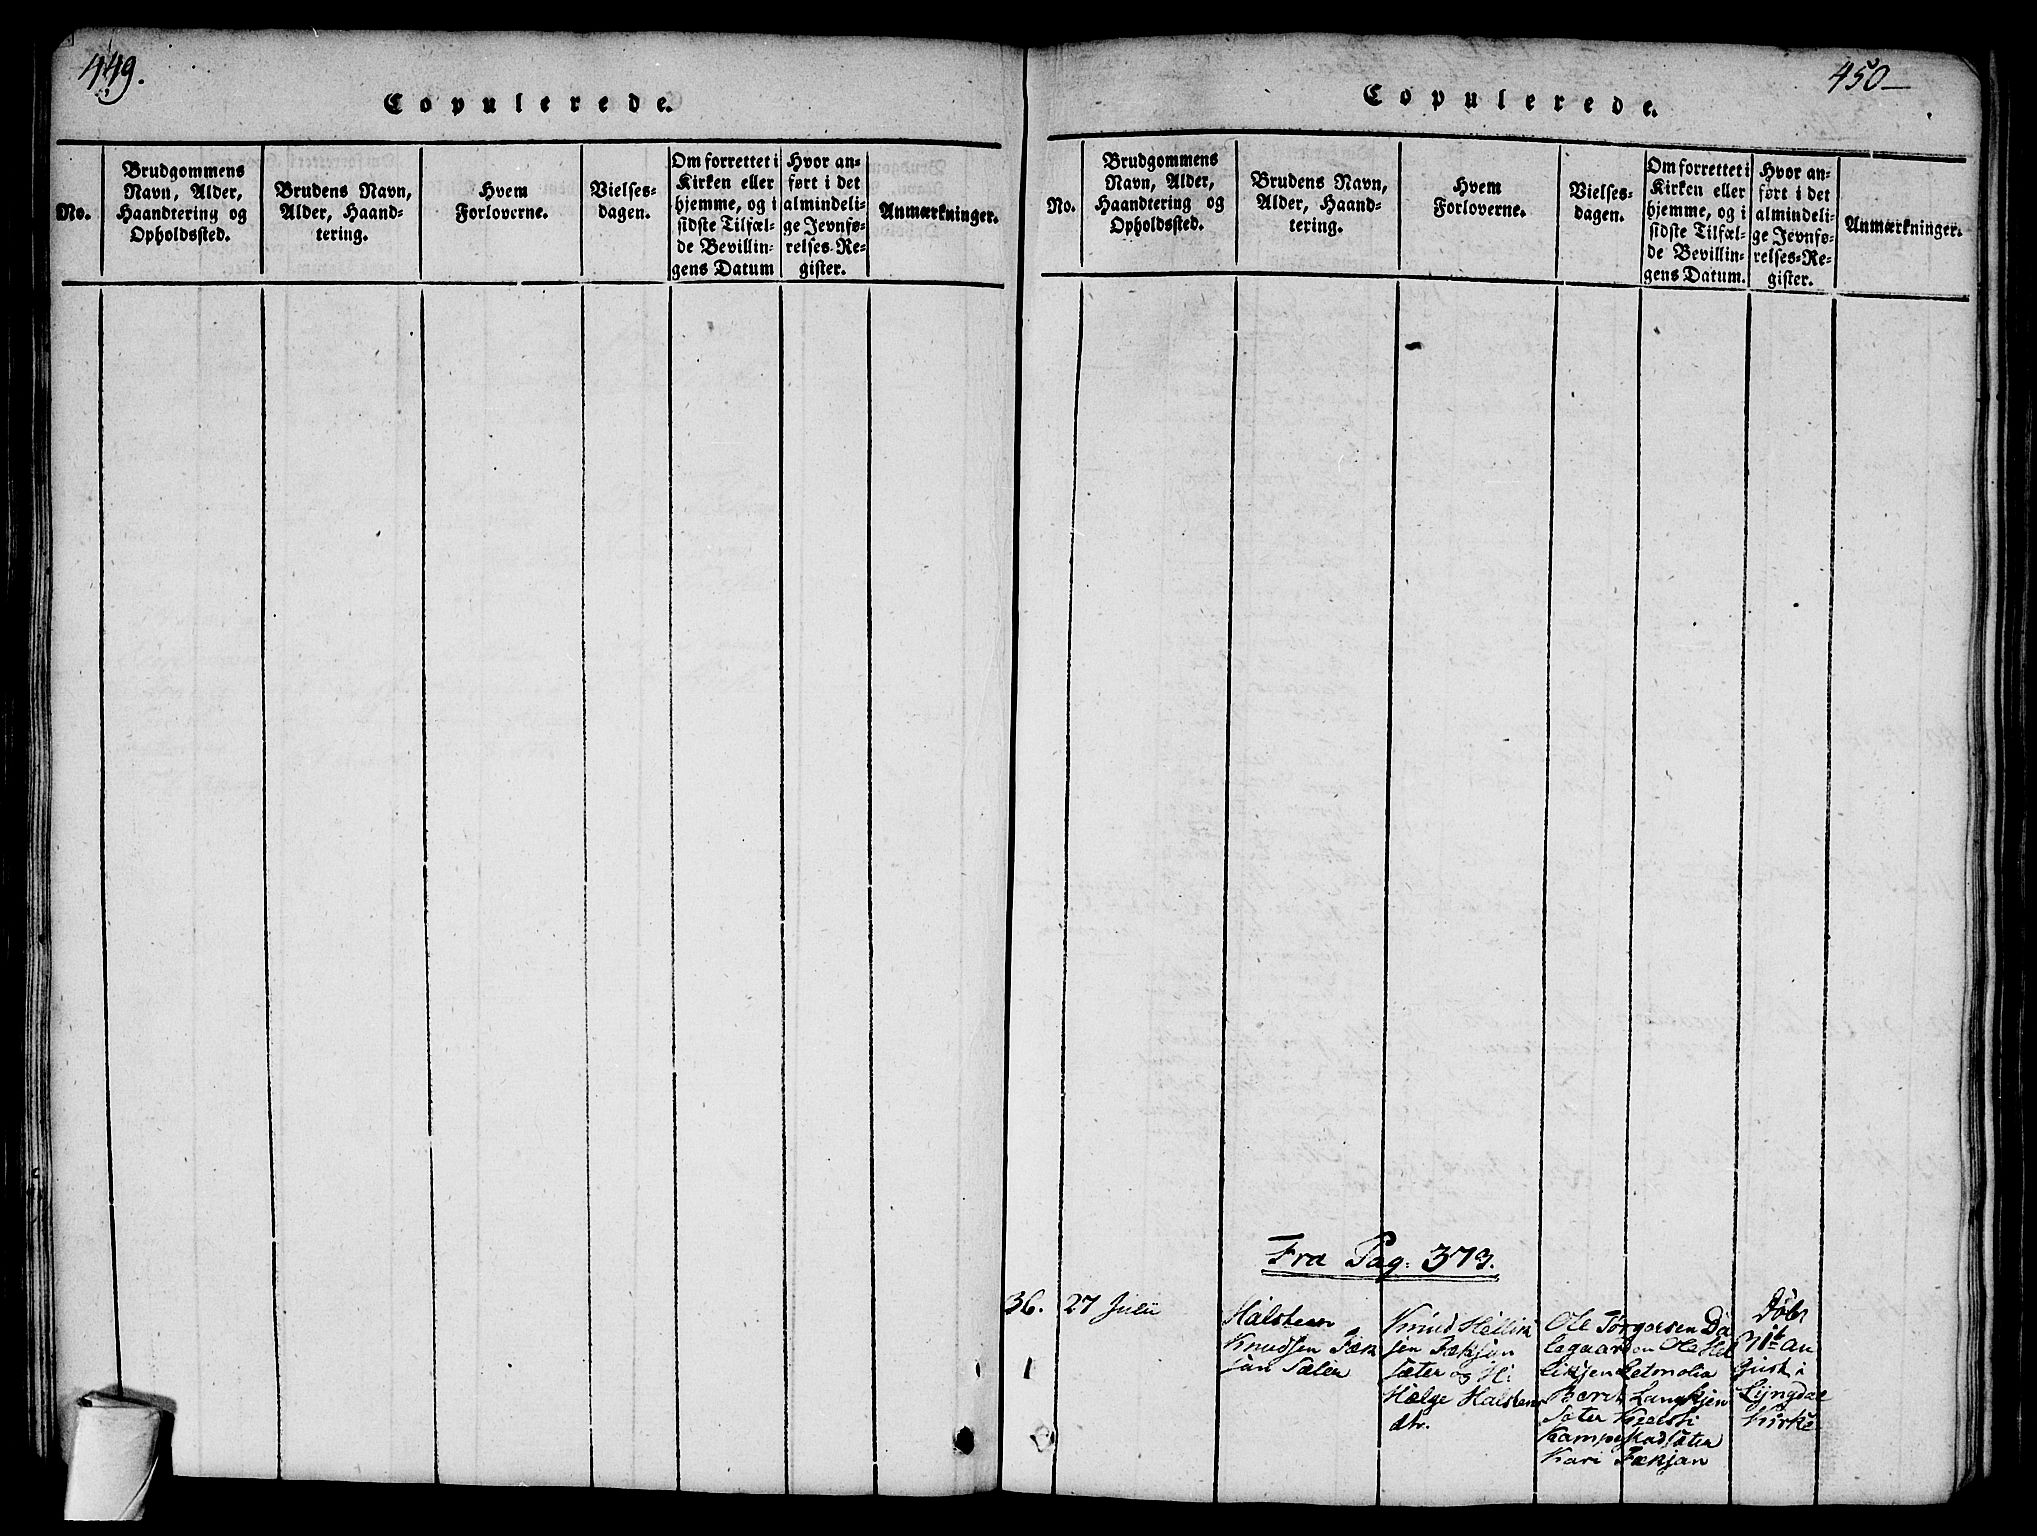 449.
Copulerede.
No.
Brudgommens
Navn, Alder,
Haandtering og
Opholdssted.
Brudens Navn,
Alder, Haand-
tering.
Hvem
Forloverne.
Vielses-
dagen.
Om forrettet i
Kirken eller
hjemme, og i
sidste Tilfæl-
de Bevillin-
gens Datum
Hvor an-
ført i det
almindeli-
ge Jevnfø-
relses-Re-
gister.
Anmærkninger.
450
Copulerede.
No.
Brudgommens
Navn, Alder,
Haandtering og
Opholdssted.
Brudens Navn,
Alder, Haand-
tering.
Hvem
Forloverne.
Vielses-
dagen.
Om forrettet i
Kirken eller
hjemme, og i
sidste Tilfæl-
de Bevillin-
gens Datum.
Hvor an-
ført i det
almindeli-
ge Jevnfø-
relses-Re-
gister.
Anmærkninger.
Fra Pag: 373.
36.
1
27 Julii
Halsteen
Knudsen
Knud
sæter og
Helge Halstens
dtr.
Ole Torgersen
Ole Hel
Berit Langkjen
Sæter
Kari
Døbt
i
Lyngdal
Kirke